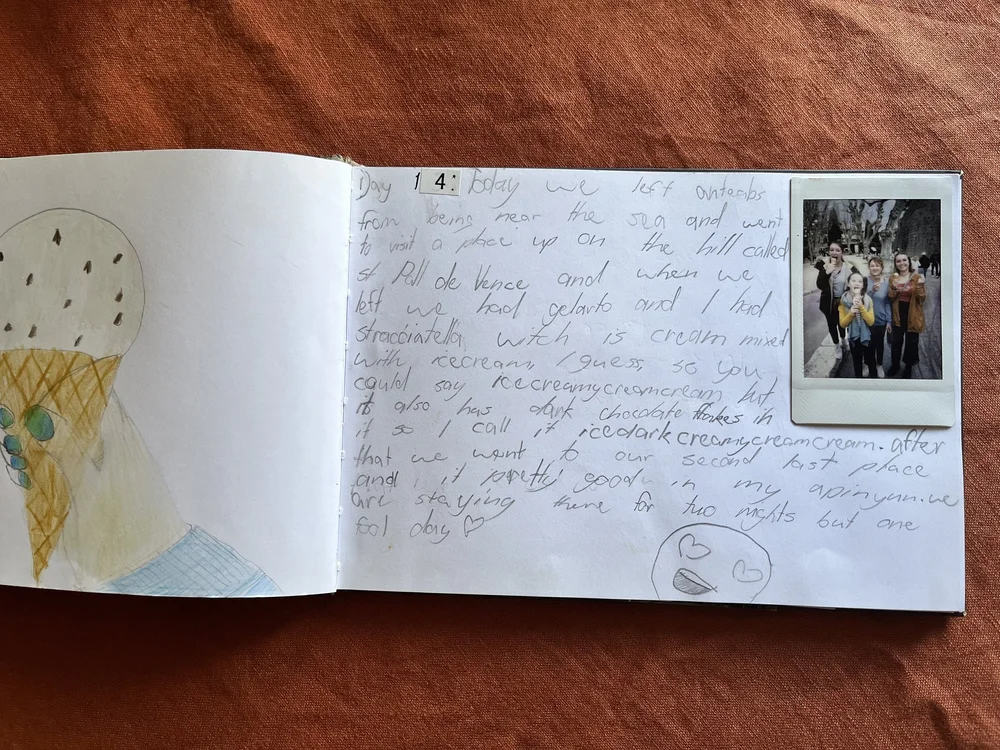 Day 14: Today we left anteabs
from being near the sea and went
to visit a place up on the hill called
st Pall de Vence and when we
left we had gelarto and I had
stracciatella, witch is cream mixed
with icecream, I guess, so you
could say icecreamycreamcream but
it also has dark chocolate flakes in
it so I call it icedarkcreamycreamcream. after
that we went to our second last place
and it pretty good in my apinyun. we
are staying there for two nights but one
fool day ♡